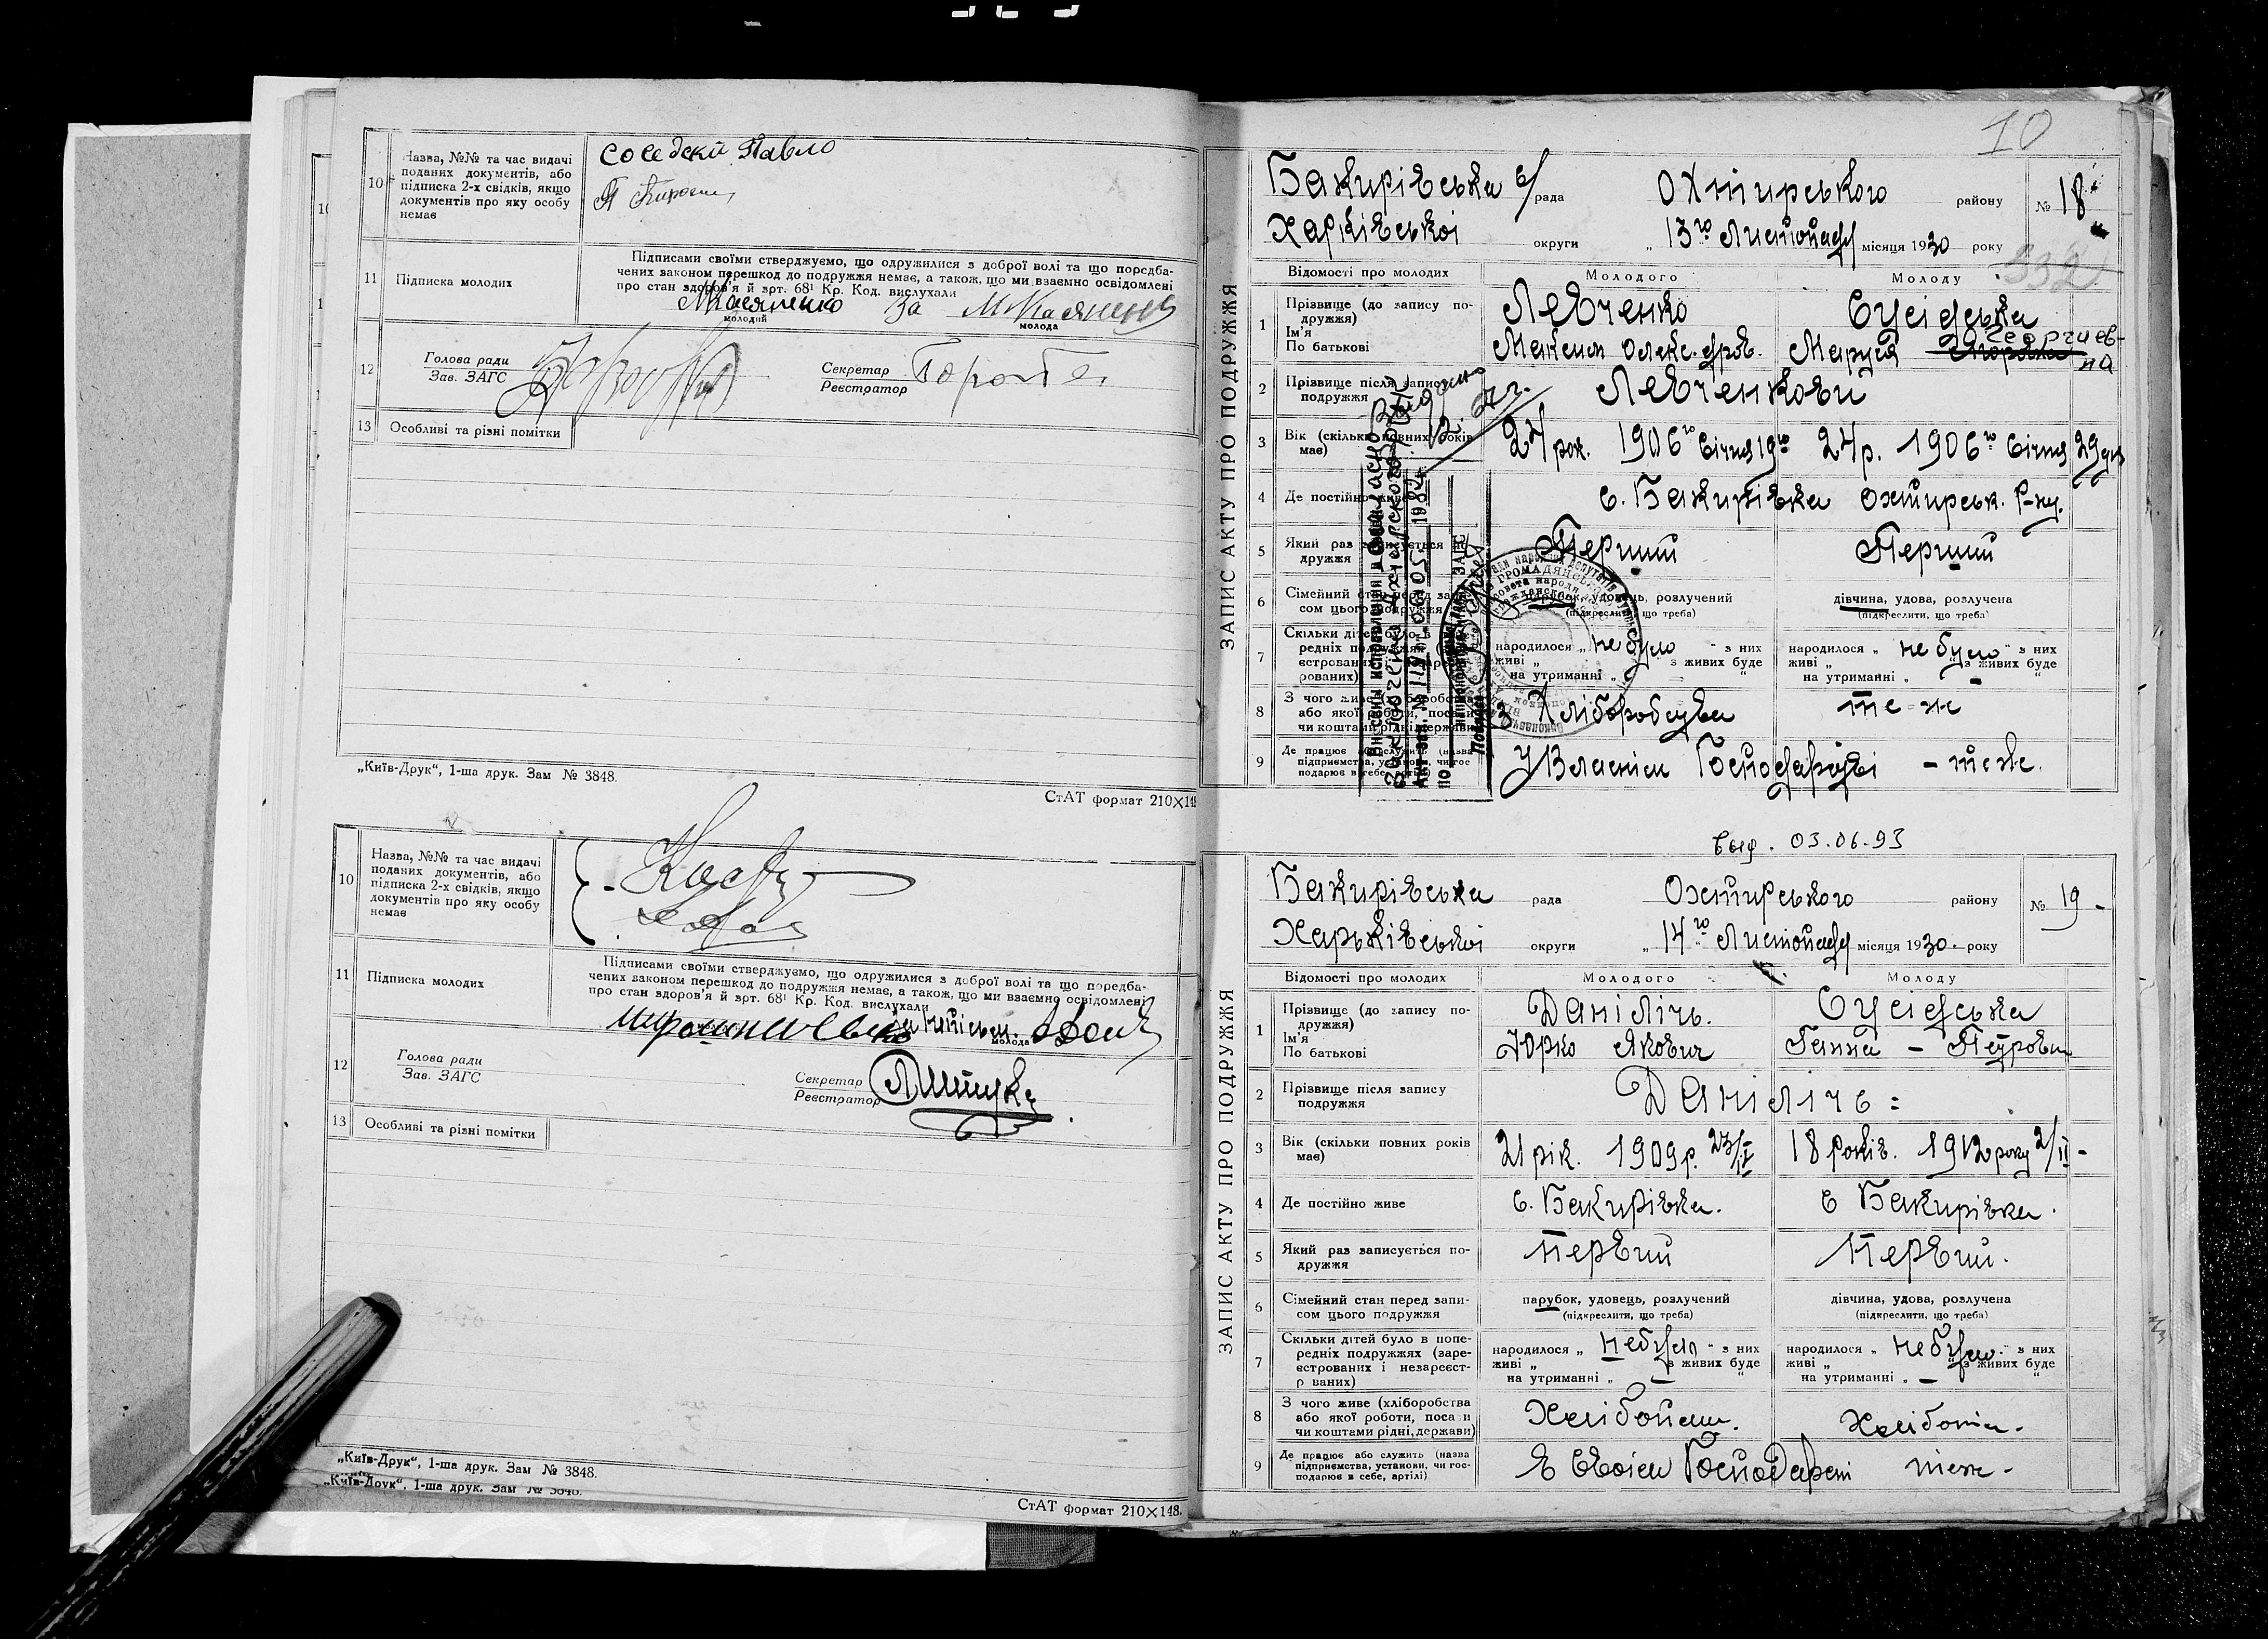 10
Назва, №№ та час видачі
поданих документів, або
підписка 2-х свідків, якщо
документів про яку особу
немає
Соседскй Павло
11
Підписка молодих
Підписами своїми стверджуємо, що одружилися з доброї волі та що передба-
чених законом перешкод до подружжя немає, а також, що ми взаємно освідомлені
про стан здоров'я й арт. 68¹ Кр. Код. вислухали
за
молодий
молода
12
Голова ради
Зав. ЗАГС
Секретар
Реєстратор
13
Особливі та різні помітки
„Київ-Друк“, 1-ша друк. Зам № 3848.
СтАТ формат 210×148
10
Назва, №№ та час видачі
поданих документів, або
підписка 2-х свідків, якщо
документів про яку особу
немає
11
Підписка молодих
Підписами своїми стверджуємо, що одружилися з доброї волі та що передба-
чених законом перешкод до подружжя немає, а також, що ми взаємно освідомлені
про стан здоров'я й арт. 68¹ Кр. Код. вислухали
молода
12
Голова ради
Зав. ЗАГС
Секретар
Реєстратор
13
Особливі та різні помітки
„Київ-Друк“, 1-ша друк. Зам № 3848.
„Київ-Друк“, 1-ша друк. Зам № 3848.
СтАТ формат 210×148.
10
ЗАПИС АКТУ ПРО ПОДРУЖЖЯ
Бакирівська с/рада Охтирського району № 18
Харківської округи „ 13го Листопада місяця 1930 року
332
Відомості про молодих
Молодого
Молоду
1
Прізвище (до запису по-
дружжя)
Ім'я
По батькові
Левченко
Сусідська
Максим Олекс.дров.
Маруся Георгиев-
на
2
Прізвище після запису
подружжя
Левченкови
3
Вік (скільки повних років
має)
24 рок. 1906го Січня 19го
24 р. 1906го Січня 29 дня
4
Де постійно живе
с. Бакирівка Охтирськ. Р-ну.
5
Який раз записується по-
дружжя
Перший
Перший
6
Сімейний стан перед запи-
сом цього подружжя
парубок, удовець, розлучений
(підкреслити, що треба)
дівчина, удова, розлучена
(підкреслити, що треба)
7
народилося „ не було “ з них
живі „ з живих буде
на утриманні „
народилося „ не було “ з них
живі „ з живих буде
на утриманні „ -
8
З Хліборобства
те-же
9
У Власнім Господарстві
- теже.
Внесены исправления
06.05 1984
выд. 03.06.93
ЗАПИС АКТУ ПРО ПОДРУЖЖЯ
Бакирівська рада Охтирського району № 19 -
Харьківської округи „ 14го Листопада місяця 1930. року
Відомості про молодих
Молодого
Молоду
1
Прізвище (до запису по-
дружжя)
Ім'я
По батькові
Данілічь.
Сусідська
Юрко Якович
Ганна - Петровн
2
Прізвище після запису
подружжя
Даніліче:
3
Вік (скільки повних років
має)
21 рік. 1909 р. 23/IV
18 років. 1912 року 2/II -
4
Де постійно живе
с. Бакирівка.
с Бакирівка.
5
Який раз записується по-
дружжя
первий
Первий.
6
Сімейний стан перед запи-
сом цього подружжя
парубок, удовець, розлучений
(підкреслити, що треба)
дівчина, удова, розлучена
(підкреслити, що треба)
7
Скільки дітей було в попе-
редніх подружжях (заре-
єстрованих і незареєст-
р ваних)
народилося „ небуло “ з них
живі „ з живих буде
на утриманні „ -
народилося „ небуло “ з них
живі „ з живих буде
на утриманні „ -
8
З чого живе (хліборобства
або якої роботи, поса и
чи коштами рідні, держави)
9
Де працює або служить (назва
підприємства, установи, чи гос-
подарює в себе, артілі)
В Своїм Господарст
теж -